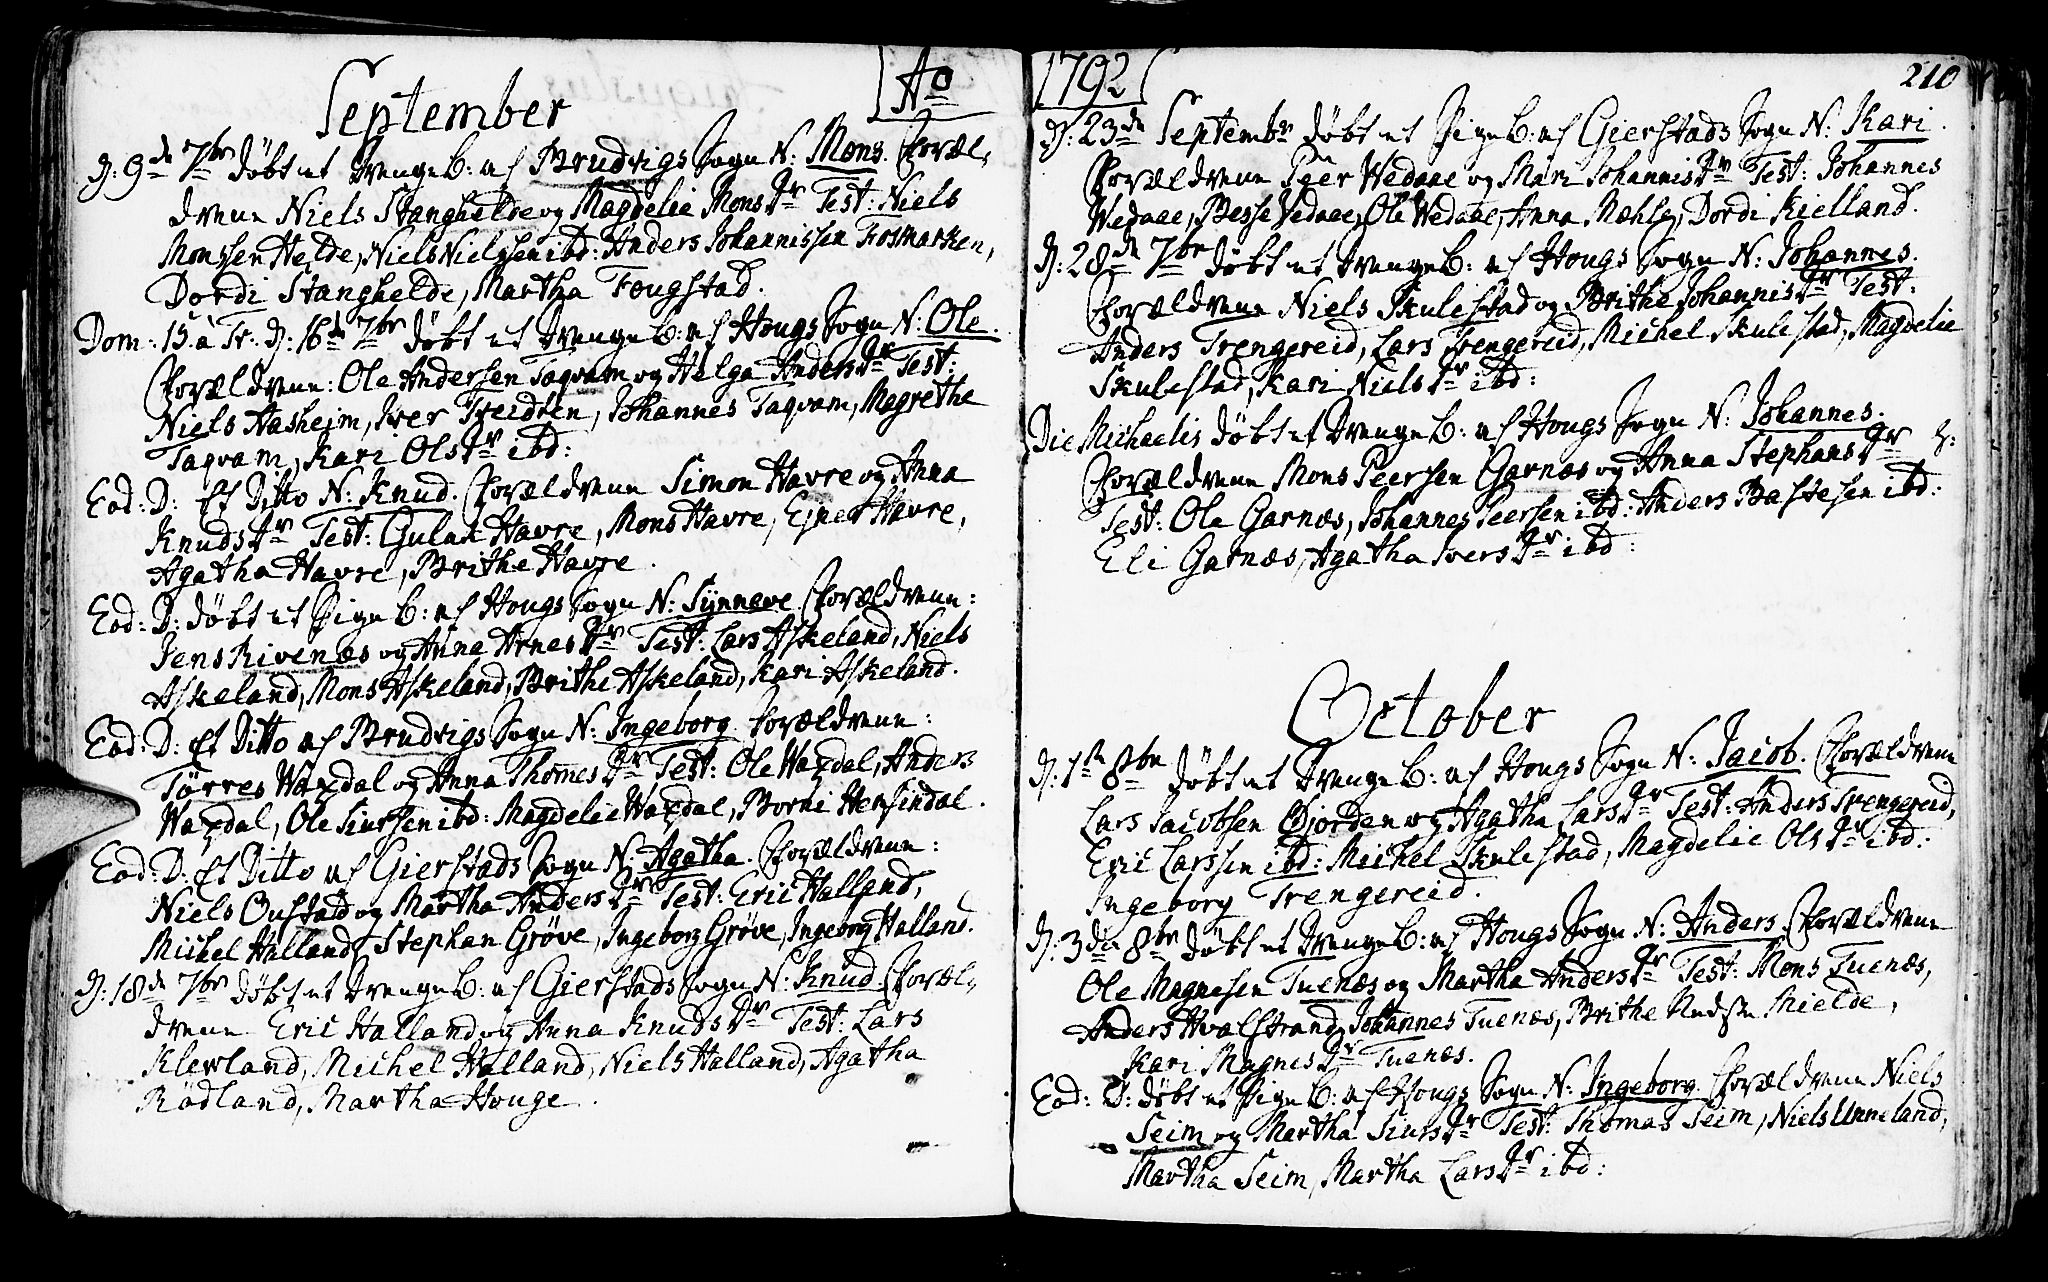 September
Ao
D: 9de 7br døbt et DrengeB: af Brudvigs Sogn N: Mons. Foræl,
drene Niels Stanghelde og Magdelie MonsDr Test: Niels
Monssen Helde, Niels Nielssen ibd: Anders Johannissen Fosmarken,
Dordi Stanghelde, Martha Fougstad.
Dom: 15 à Tr: D: 16de 7br døbt et DrengeB: af Hougs Sogn N: Ole.
Forældrene: Ole Andersen Taqvam og Helga AndersDr Test:
Niels Aasheim, Iver Treidten, Johannes Taqvam, Magrethe
Taqvam, Kari OlsDr ibd:
Eod: D: Et Ditto N: Knud. Forældrene Simon Havre og Anna
KnudsDr Test: Gulak Havre, Mons Havre, Ejner Havre,
Agatha Havre, Brithe Havre.
Eod: D: døbt et PigeB: af Hougs Sogn N: Synneve Forældrene:
Jens Rivenæs og Anna ArnesDr Test: Lars Askeland, Niels
Askeland, Mons Askeland, Brithe Askeland, Kari Askeland.
Eod: D: Et Ditto af Brudvigs Sogn N: Ingeborg Forældrene:
Tørres Waxdal og Anna ThomesDr Test: Ole Waxdal, Anders
Waxdal, Ole Siurssen ibd: Magdelie Waxdal, Borni Hersindal.
Eod: D: Et Ditto af Gierstads Sogn N: Agatha. Forældrene:
Niels Oustad og Martha AndersDr Test: Eric Halland,
Michel Halland, Stephan Grøve, Ingeborg Grøve, Ingeborg Halland.
D: 18de 7br døbt et DrengeB: af Gierstads Sogn N: Knud Foræl,
drene Eric Halland og Anna KnudsDr Test: Lars
Klevland, Michel Halland, Niels Halland, Agatha
Rødland, Martha Houge.
1792
210
D: 23de Septembr døbt et PigeB: af Gierstads Sogn N: Kari.
Forældrene Peer Wedaae og Mari JohannisDr Test: Johannes
Wedaae, Besse Vedaae, Ole Wedaae, Anna Mæhle, Dordi Kielland.
D: 28de 7br døbt et DrengeB: af Hougs Sogn N: Johannes.
Forældrene Niels Skulestad og Brithe JohannisDr Test:
Anders Trengereid, Lars Trengereid, Michel Skulestad, Magdelie
Skulestad, Kari NielsDr ibd:
Die Michaelis døbt et DrengeB: af Hougs Sogn N: Johannes.
Forældrene Mons Peersen Garnæs og Anna StephansDr
Test: Ole Garnæs, Johannes Peersen ibd: Anders Bastesen ibd:
Eli Garnæs, Agatha IversDr ibd:
October
D: 1te 8br døbt et DrengeB: af Hougs Sogn N: Jacob. Forældrene
Lars Jacobsen Gjordan og Agatha LarsDr Test: Anders Trengereid,
Eric Larssen ibd: Michel Skulestad, Magdelie OlsDr ibd:
Ingeborg Trengereid.
D: 3die 8br døbt et DrengeB: af Hougs Sogn N: Anders. Forældrene
Ole Magnesen Tuenæs og Martha AndersDr Test: Mons Tuenæs,
Anders Hvalstrand, Johannes Tuenæs, Brithe Mielde,
Kari MagnesDr Tuenæs.
Eod: D: døbt et PigeB: af Hougs Sogn N: Ingeborg. Forældrene Niels
Seim og Martha SiursDr Test: Thomas Seim, Niels Unneland,
Martha Seim, Martha LarsDr ibd: